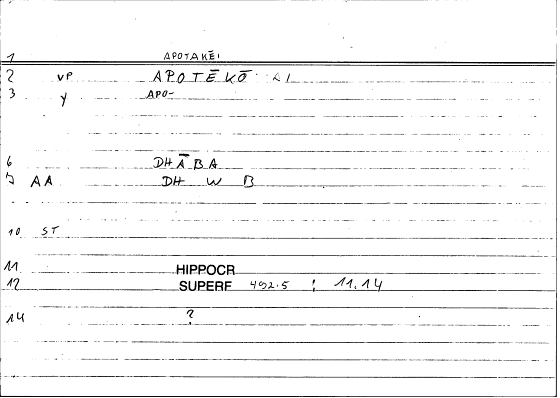 1 APOTAKĒI
2 VP APOTĒKŌ AI
3 y APO-
6 DHĀBA
5 AA DH W B
10 ST
11 HIPPOCR
12 SUPERF 492.5 : 11.14
14 ?